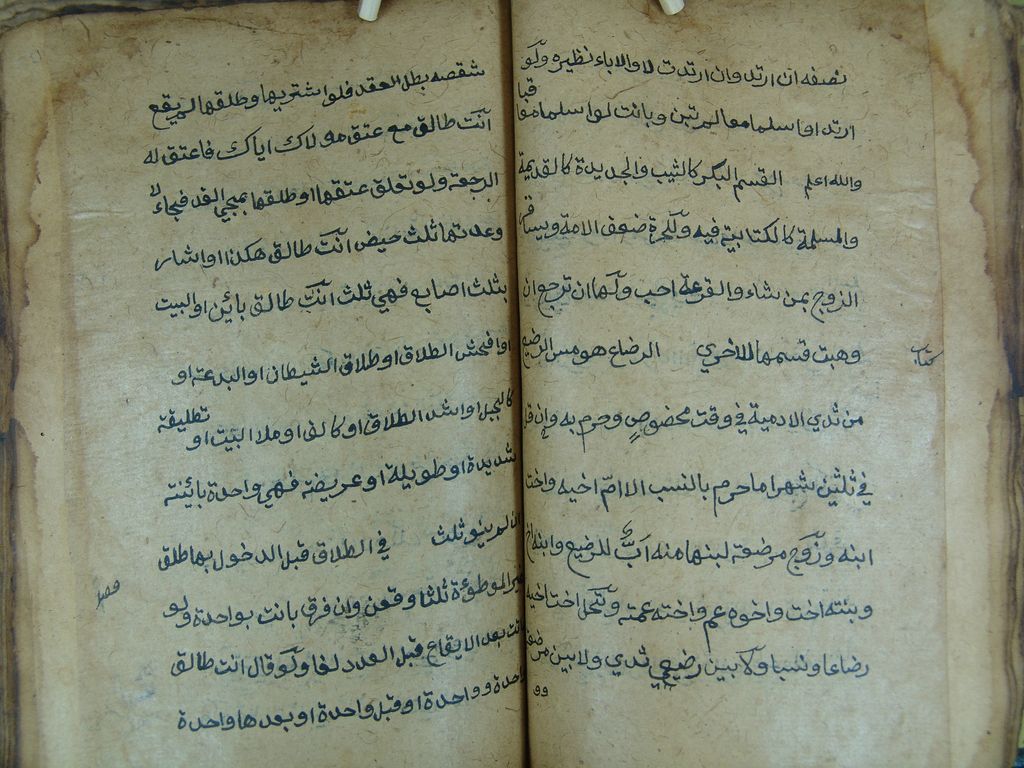 نصفه ان ارتد وان ارتدت لا والاباء نظيره ولو
ارتدا واسلما معا لم تبن وبانت لو اسلما متعاقبا
والله اعلم القسم البكر كالثيب والجديدة كالقديمة
والمسلمة كالكتابية فيه وللحرة ضعف الامة ويسافر
الزوج بمن شاء والقرعة احب ولها ان ترجع ان
وهبت قسمها للاخري الرضاع هو مص الرضيع
كتاب
من ثدي الادمية في وقت مخصوص وحرم به وان قل
في ثلثين شهرا ما حرم بالنسب الا ام اخيه واخت
ابنه وزوج مرضعة لبنها منه اب للرضيع وابنه اخ
وبنته اخت واخوه عم واخته عمته وتحل اخت اخيه
رضاعا ونسبا ولا بين رضيعي ثدي ولا بين مرضعة
شقصه بطل العقد فلو اشتريها وطلقها لم يقع
انت طالق مع عتق مولاك اياك فاعتق له
الرجعة ولو تعلق عتقها وطلقها بمجيء الغد فجاء لا
وعدتها ثلث حيض انت طالق هكذا واشار
بثلث اصابع فهي ثلث انت طالق بائن او البت
او افحش الطلاق او طلاق الشيطان او البدعة او
كالجبل او اشد الطلاق او كالف او ملا البيت او تطليقة
شديدة او طويلة او عريضة فهي واحدة بائنة
ان لم ينو ثلث في الطلاق قبل الدخول بها طلق
فصل
غير الموطوءة ثلثا وقعن وان فرق بانت بواحدة ولو
ماتت بعد الايقاع قبل العدد لغا ولو قال انت طالق
واحدة وواحدة او قبل واحدة او بعدها واحدة